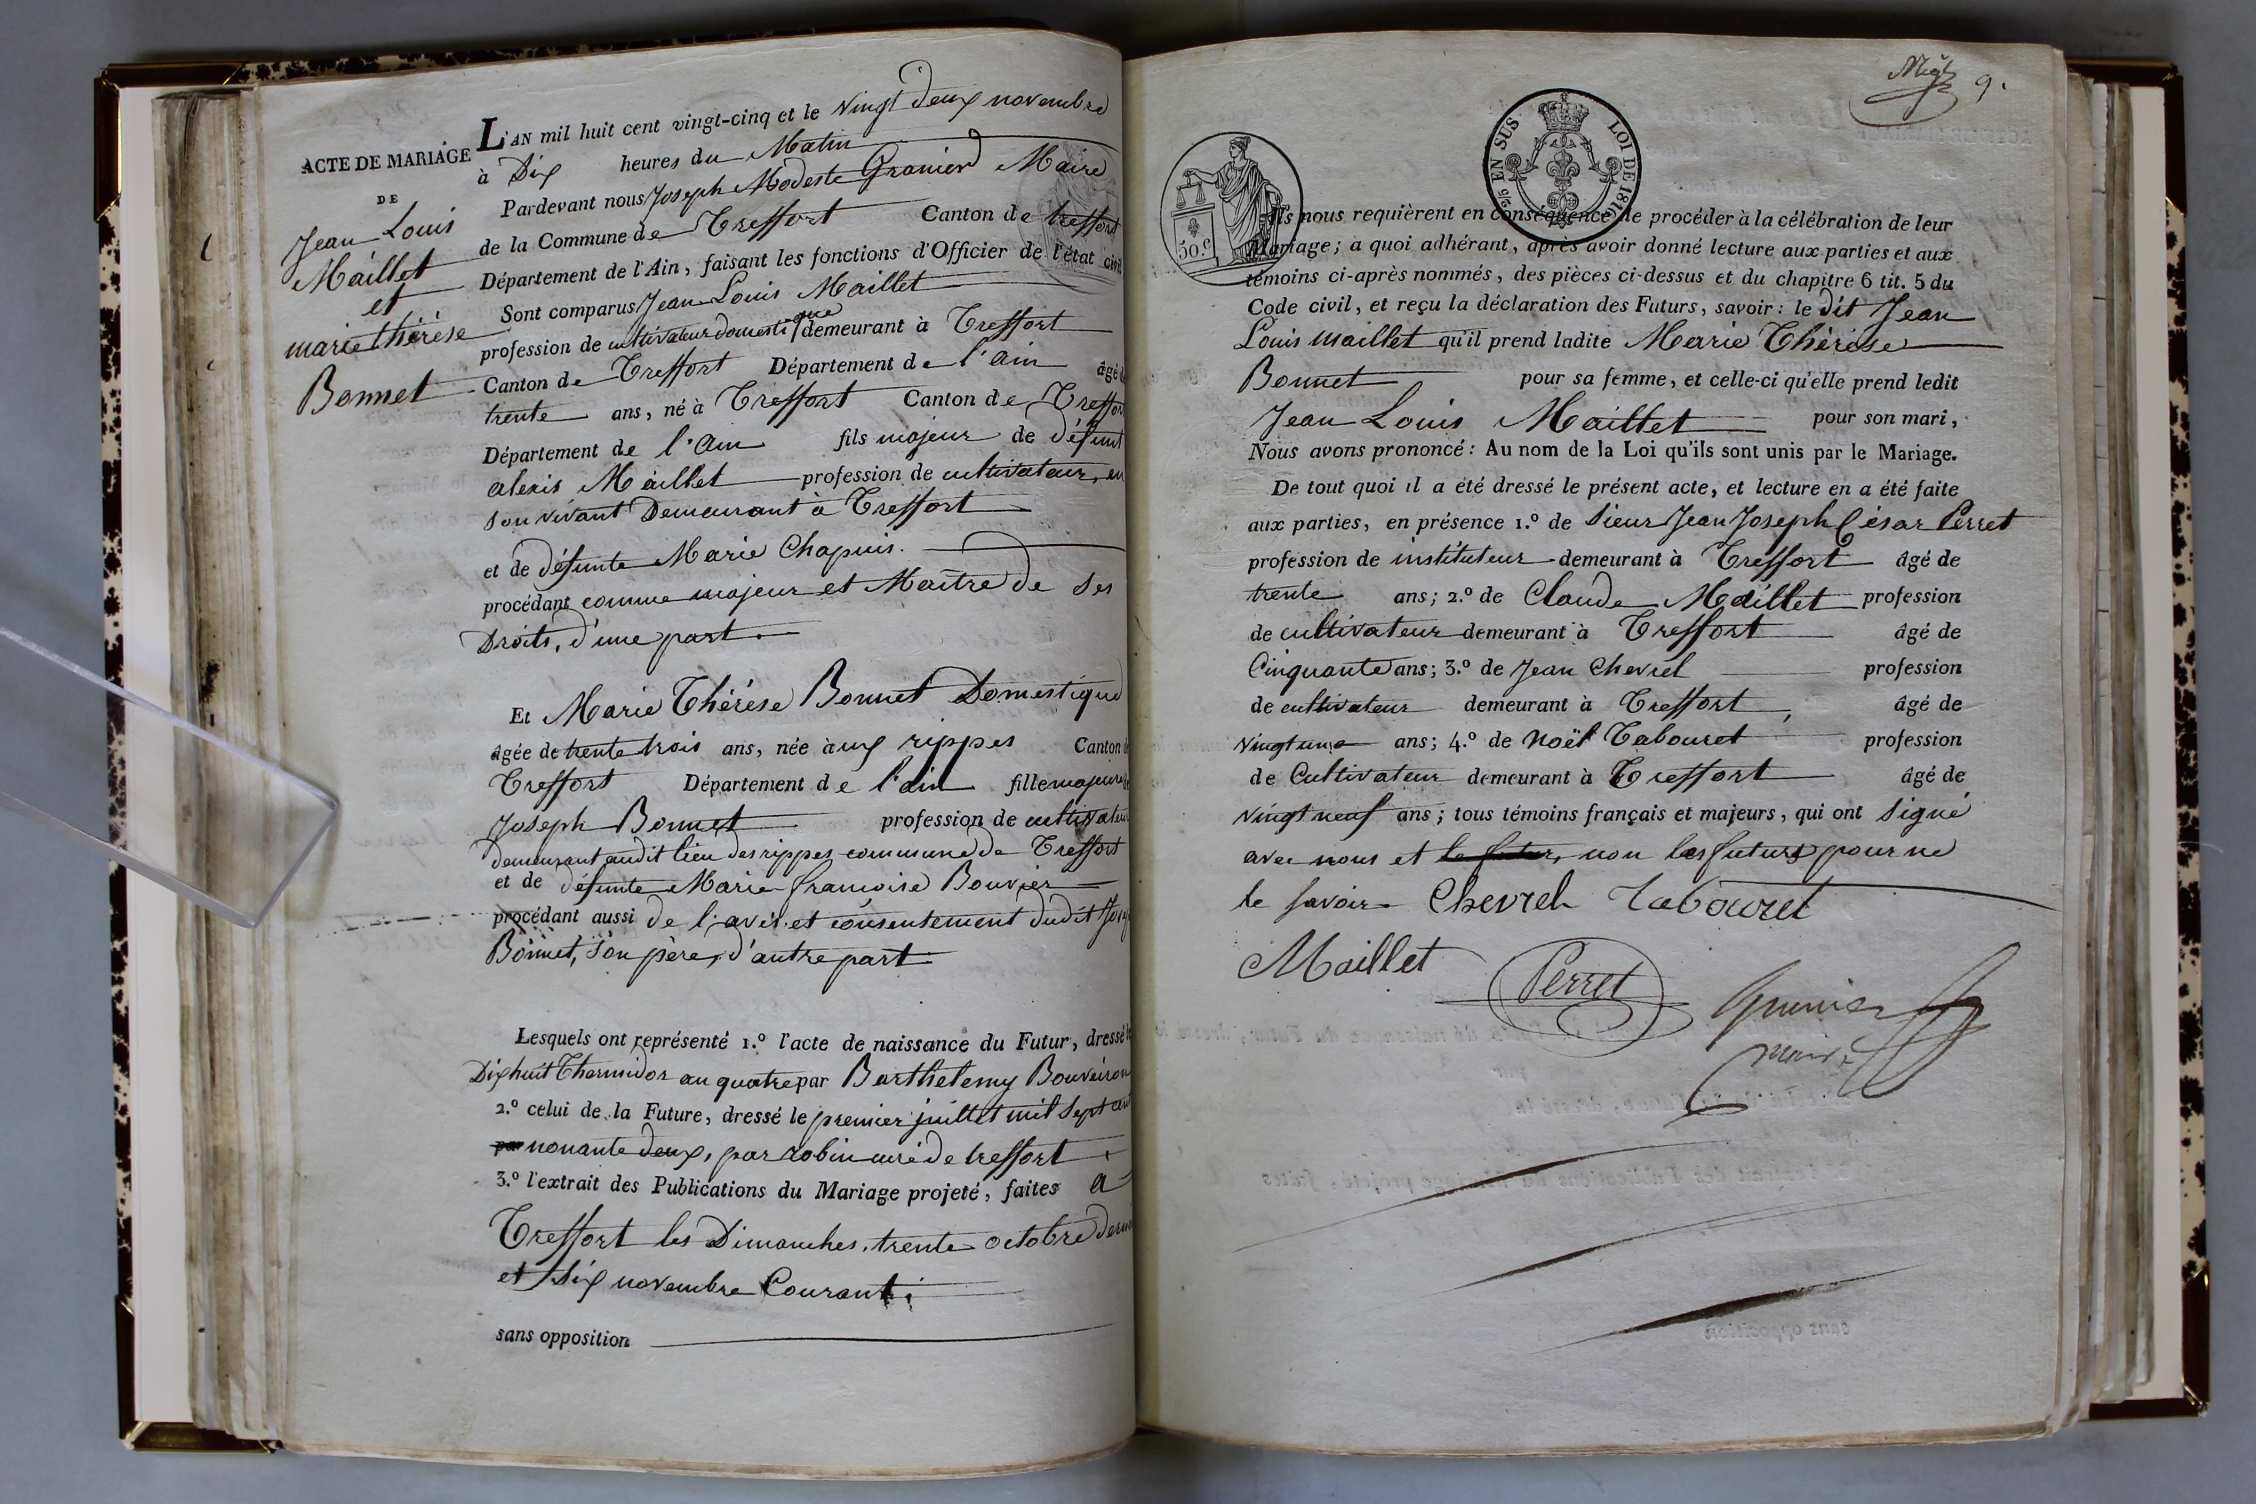 ACTE DE MARIAGE
DE
Jean Louis
Maillet
et
marie thérèse
Bonnet
L'AN mil huit cent vingt-cinq et le vingt deux novembre
à Dix heures du Matin
Pardevant nous Joseph Modeste Granier Maire
de la Commune de Treffort Canton de treffort
Département de l'Ain, faisant les fonctions d'Officier de l'état civil
Sont comparus Jean Louis Maillet
profession de cultivateur domestique demeurant à Treffort
Canton de Treffort Département de l'ain âgé de
trente ans, né à Treffort Canton de Treffort
Département de l'ain fils majeur de défunt
alexis Maillet profession de cultivateur, en
son vivant Demeurant à Treffort
et de défunte Marie Chapuis.
procédant comme majeur et Maître de ses
Droits, d'une part.
Et Marie Thérèse Bonnet Domestique
âgée de trente trois ans, née à aux rippes Canton de
Treffort Département de l'ain fille majeure de
Joseph Bonnet profession de cultivateur
demeurant audit lieu des rippes commune de Treffort
et de défunte Marie francoise Bouvier
procédant aussi de l'avis et consentement dudit Joseph
Bonnet, son père, d'autre part
Lesquels ont représenté 1.º l'acte de naissance du Futur, dressé le
Dix huit Thermidor an quatre par Barthelemy Bouveiron
2.º celui de la Future, dressé le premier juillet mil sept cent
par nonante deux, par robin curé de treffort
3.º l'extrait des Publications du Mariage projeté, faites a
Treffort les Dimanches, trente octobre dernier
et six novembre Courant.
sans opposition
9.
5/10 EN SUS LOI DE 1816
50.c
Ils nous requièrent en conséquence de procéder à la célébration de leur
Mariage; à quoi adhérant, après avoir donné lecture aux parties et aux
témoins ci-après nommés, des pièces ci-dessus et du chapitre 6 tit. 5 du
Code civil, et reçu la déclaration des Futurs, savoir: le dit Jean
Louis maillet qu'il prend ladite Marie Thérèse
Bonnet pour sa femme, et celle-ci qu'elle prend ledit
Jean Louis Maillet pour son mari,
Nous avons prononcé: Au nom de la Loi qu'ils sont unis par le Mariage.
De tout quoi il a été dressé le présent acte, et lecture en a été faite
aux parties, en présence 1.º de Sieur Jean Joseph César Perret
profession de instituteur demeurant à Treffort âgé de
trente ans; 2.º de Claude Maillet profession
de cultivateur demeurant à Treffort âgé de
Cinquante ans; 3.º de Jean Chevrel profession
de cultivateur demeurant à Treffort, âgé de
vingt un ans; 4.º de Noël Tabouret profession
de Cultivateur demeurant à Treffort âgé de
vingt neuf ans; tous témoins français et majeurs, qui ont signé
avec nous et le futur, non les futurs pour ne
le savoir Chevrel Tabouret
Maillet Perret Granier
maire